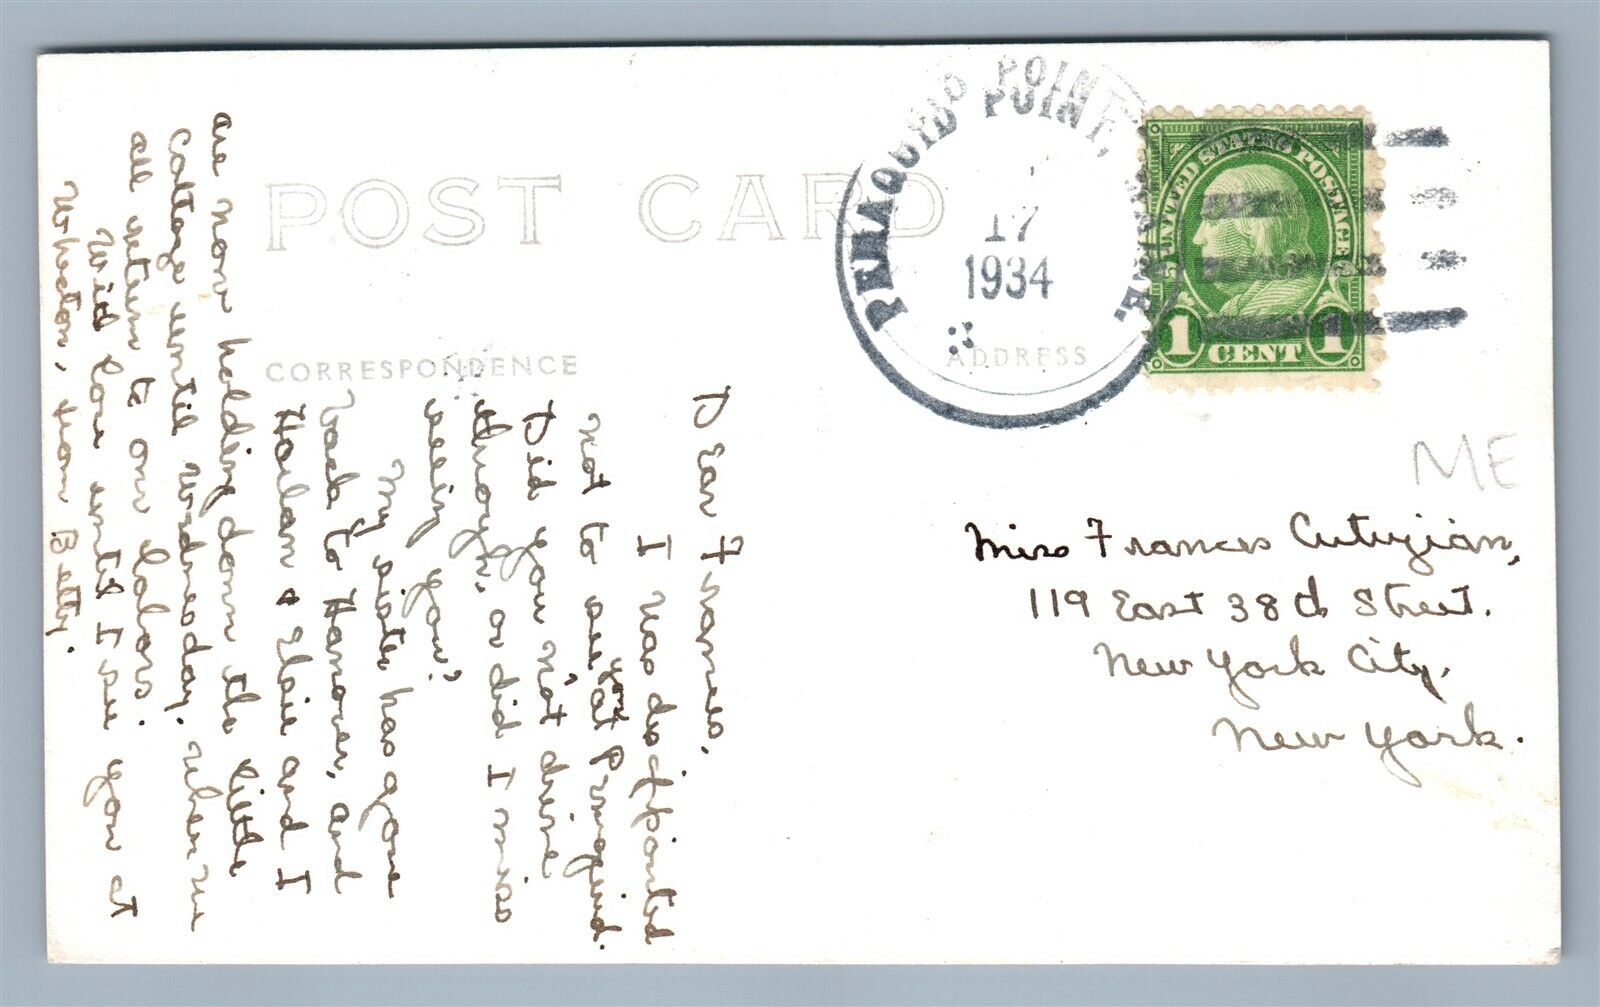 POST CARD
CORRESPONDENCE
ADDRESS
PEMAQUID POINT,
17
1934
UNITED STATES POSTAGE
1 CENT 1
ME
Miss Frances Cutujian,
119 East 38th Street.
New York City,
New York.
Dear Frances,
I was disappointed
not to see you at Pemaquid.
Did you not drive
through, or did I miss
seeing you?
My sister has gone
back to Hanover, and
Harlan & Elsie and I
are now holding down the little
cottage until Wednesday. When we
all return to our labors.
With love until I see you at
Wheaton, from Betty.